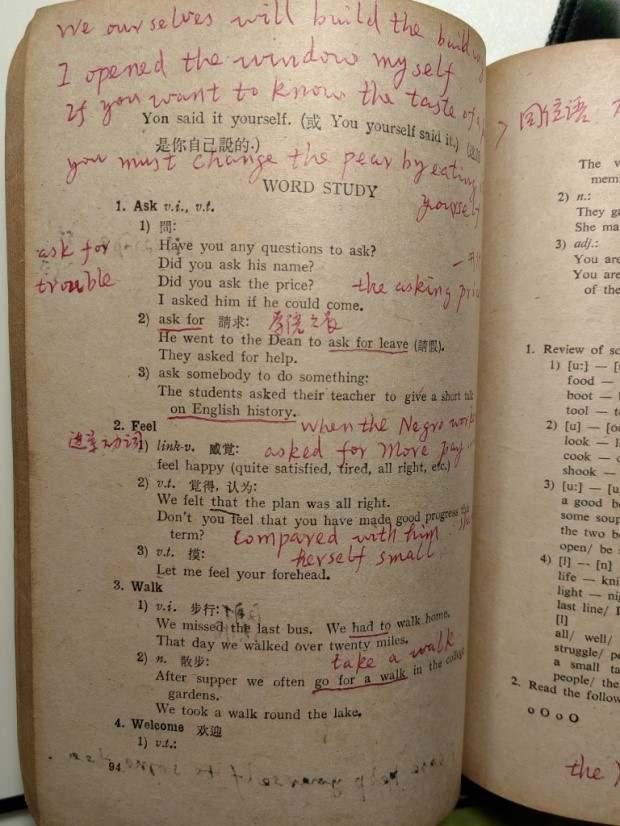 We ourselves will build the building
I opened the window myself
If you want to know the taste of a
Yon said it yourself. (或 You yourself said it.)
是你自己説的.)
you must change the pear by eating
yourself
WORD STUDY
1. Ask v.i., v.t.
1) 問:
Have you any questions to ask?
ask for
trouble
Did you ask his name?
Did you ask the price?
the asking price
I asked him if he could come.
2) ask for 請求:
He went to the Dean to ask for leave (請假).
They asked for help.
3) ask somebody to do something:
The students asked their teacher to give a short talk
on English history.
2. Feel
when the Negro
1) link-v. 感覚:
asked for more pay
feel happy (quite satisfied, tired, all right, etc.)
2) v.t. 覚得, 认为:
We felt that the plan was all right.
Don't you feel that you have made good progress this
term?
Compared with him
herself small
3) v.t. 摸:
Let me feel your forehead.
3. Walk
1) v.i. 步行:
We missed the last bus. We had to walk home.
That day we walked over twenty miles.
2) n. 散步:
take a walk
After supper we often go for a walk in the college
gardens.
We took a walk round the lake.
4. Welcome 欢迎
1) v.t.:
94
The v
mem
2) n.:
They ga
She ma
3) adj.:
You are
You are
of the
1. Review of so
1) [u:] —
food —
boot —
tool —
2) [u] —
look —
cook —
shook —
3) [u:] —
a good b
some soup
the two b
open/ be
4) [l] — [n]
life — kni
light — nig
last line/
[l]
all/ well/
struggle/ pe
a small ta
people/ the
2. Read the follow
o O o O
the